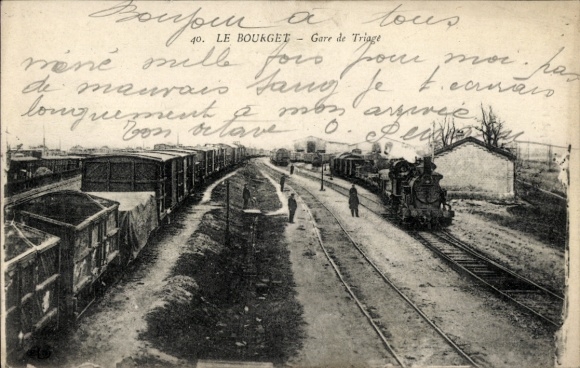 Bonjour à tous
40. LE BOURGET - Gare de Triage
mimé mille fois pour moi pas
de mauvais sang je t'ecrirais
longuement a mon arrivée
ton octave O.